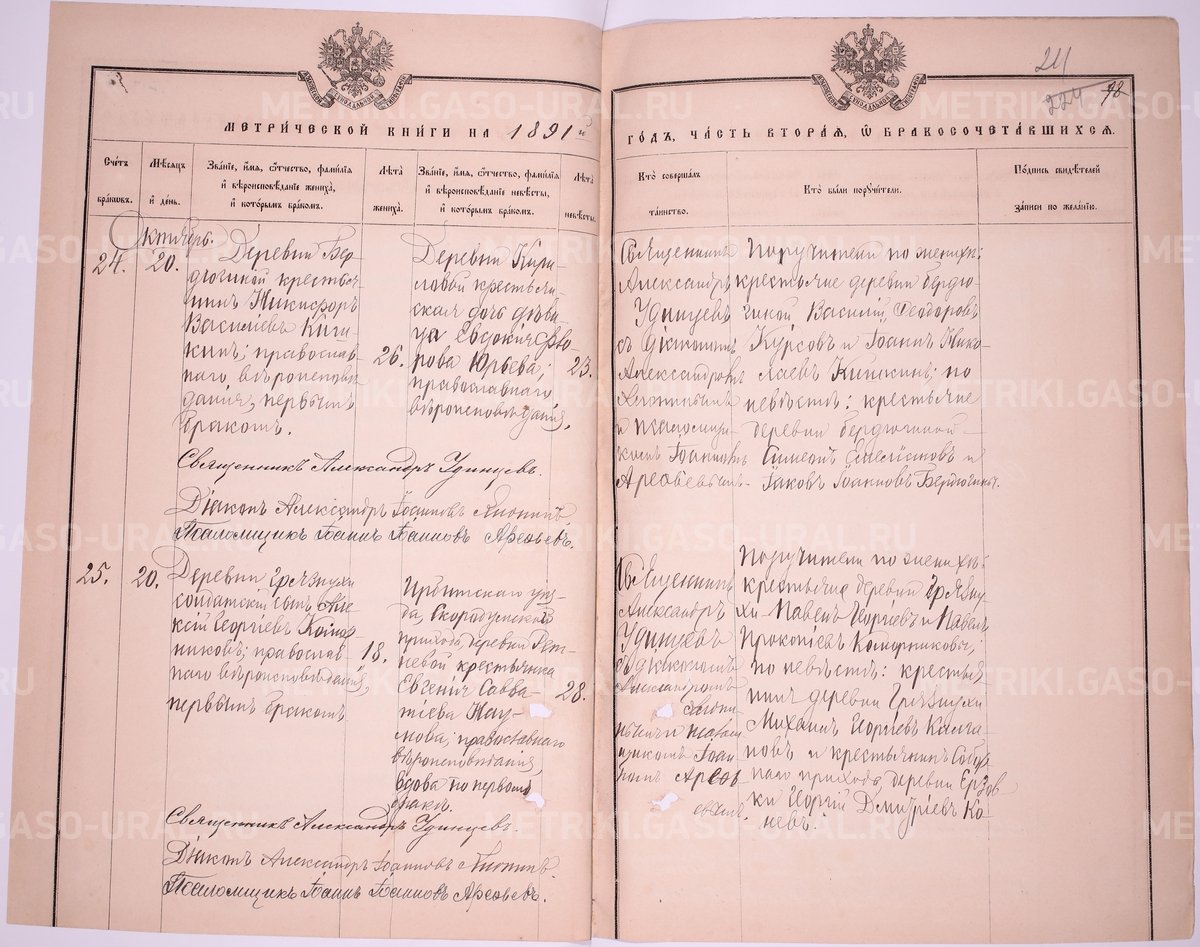 24
224 98
МЕТРИ́ЧЕСКОЙ КНИ́ГИ НА 1891 й
ГО́ДЪ, ЧА́СТЬ ВТОРА́Я, Ѿ БРАКОСОЧЕТА́ВШИХСЯ.
Сче́тъ бра́ковъ.
Мѣ́сяцъ и҆ де́нь.
Зва́нїе, и҆́мя, ѻ҆́тчество, фами́лїя
и҆ вѣроисповѣ́данїе жениха̀,
и҆ кото́рымъ бра́комъ.
Лѣта̀ жениха̀.
Зва́нїе, и҆́мя, ѻ҆́тчество, фамилїя
и҆ вѣроисповѣ́данїе невѣ́сты,
и҆ кото́рымъ бра́комъ.
Лѣта̀ невѣ́сты.
Кто̀ соверша́лъ
та́инство.
Кто̀ бы́ли пору́чители.
По́дпись свидѣ́телей
за́писи по жела́нїю.
Октябрь.
24.
20.
Деревни Бер-
дюгиной крестья-
нинъ Никифоръ
Василіевъ Киш-
кинъ; православ-
наго вѣроисповѣ-
данія, первымъ
бракомъ.
26.
Деревни Кири-
ловой крестьян-
ская дочь дѣви-
ца Евдокія Ѳео-
рова Юрьева;
православнаго
вѣроисповѣданія,
23.
Священникъ
Александръ
Удинцевъ
съ діакономъ
Александромъ
и псаломщи-
комъ Іоанномъ
Арефьевымъ.
Поручители по женихѣ:
крестьяне деревни Бердю-
гиной Василій Ѳеодоровъ
Курсовъ и Іоаннъ Нико-
лаевъ Кишкинъ; по
невѣстѣ: крестьяне
деревни Бердюгиной
Симеонъ и
Іаковъ Іоанновъ Бердюгины.
Священникъ Александръ Удинцевъ.
Діаконъ Александръ Іоанновъ
Псаломщикъ Іоаннъ Іоанновъ Арефьевъ.
25.
20.
Деревни Грязнухи
солдатскій сынъ Але-
ксій Георгіевъ Комор-
никовъ; православ-
наго вѣроисповѣданія,
первымъ бракомъ
18.
Ирбитскаго уѣз-
да, Скородумскаго
прихода деревни Рет-
невой крестьянка
Евгенія Савва-
тіева Нау-
мова; православнаго
вѣроисповѣданія,
вдова по первомъ
бракѣ.
28.
Священникъ
Александръ
Удинцевъ
съ діакономъ
Александромъ
и псалом-
щикомъ Іоан-
номъ Арефь-
евымъ.
Поручители по женихѣ:
крестьяне деревни Грязну-
хи Павелъ Георгіевъ и Павелъ
Прокопіевъ Коморниковы;
по невѣстѣ: крестья-
нинъ деревни Грязнухи
Михаилъ Георгіевъ Колча-
новъ и крестьянинъ
наго прихода, деревни Ерзов-
ки Георгій Дмитріевъ Ко-
невъ.
Священникъ Александръ Удинцевъ.
Діаконъ Александръ Іоанновъ
Псаломщикъ Іоаннъ Іоанновъ Арефьевъ.
METRIKI.GASO-URAL.RU